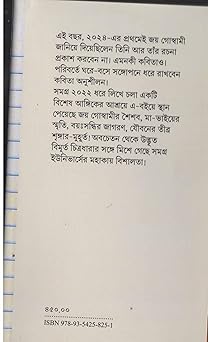 এই বছর, ২০২৪-এর প্রথমেই জয় গোস্বামী
জানিয়ে দিয়েছিলেন তিনি আর তাঁর রচনা
প্রকাশ করবেন না। এমনকী কবিতাও।
পরিবর্তে ঘরে-বসে সঙ্গোপনে ধরে রাখবেন
কবিতা অনুশীলন।
সমগ্র ২০২২ ধরে লিখে চলা একটি
বিশেষ আঙ্গিকের আশ্রয়ে এ-বইয়ে স্থান
পেয়েছে জয় গোস্বামীর শৈশব, মা-ভাইয়ের
স্মৃতি, বয়ঃসন্ধির জাগরণ, যৌবনের তীব্র
শৃঙ্গার-মুহূর্ত। অবচেতন থেকে উদ্ভূত
বিমূর্ত চিত্রধারার সঙ্গে মিশে গেছে সমগ্র
ইউনিভার্সের মহাকায় বিশালতা।
৪৫০.০০
ISBN 978-93-5425-825-1